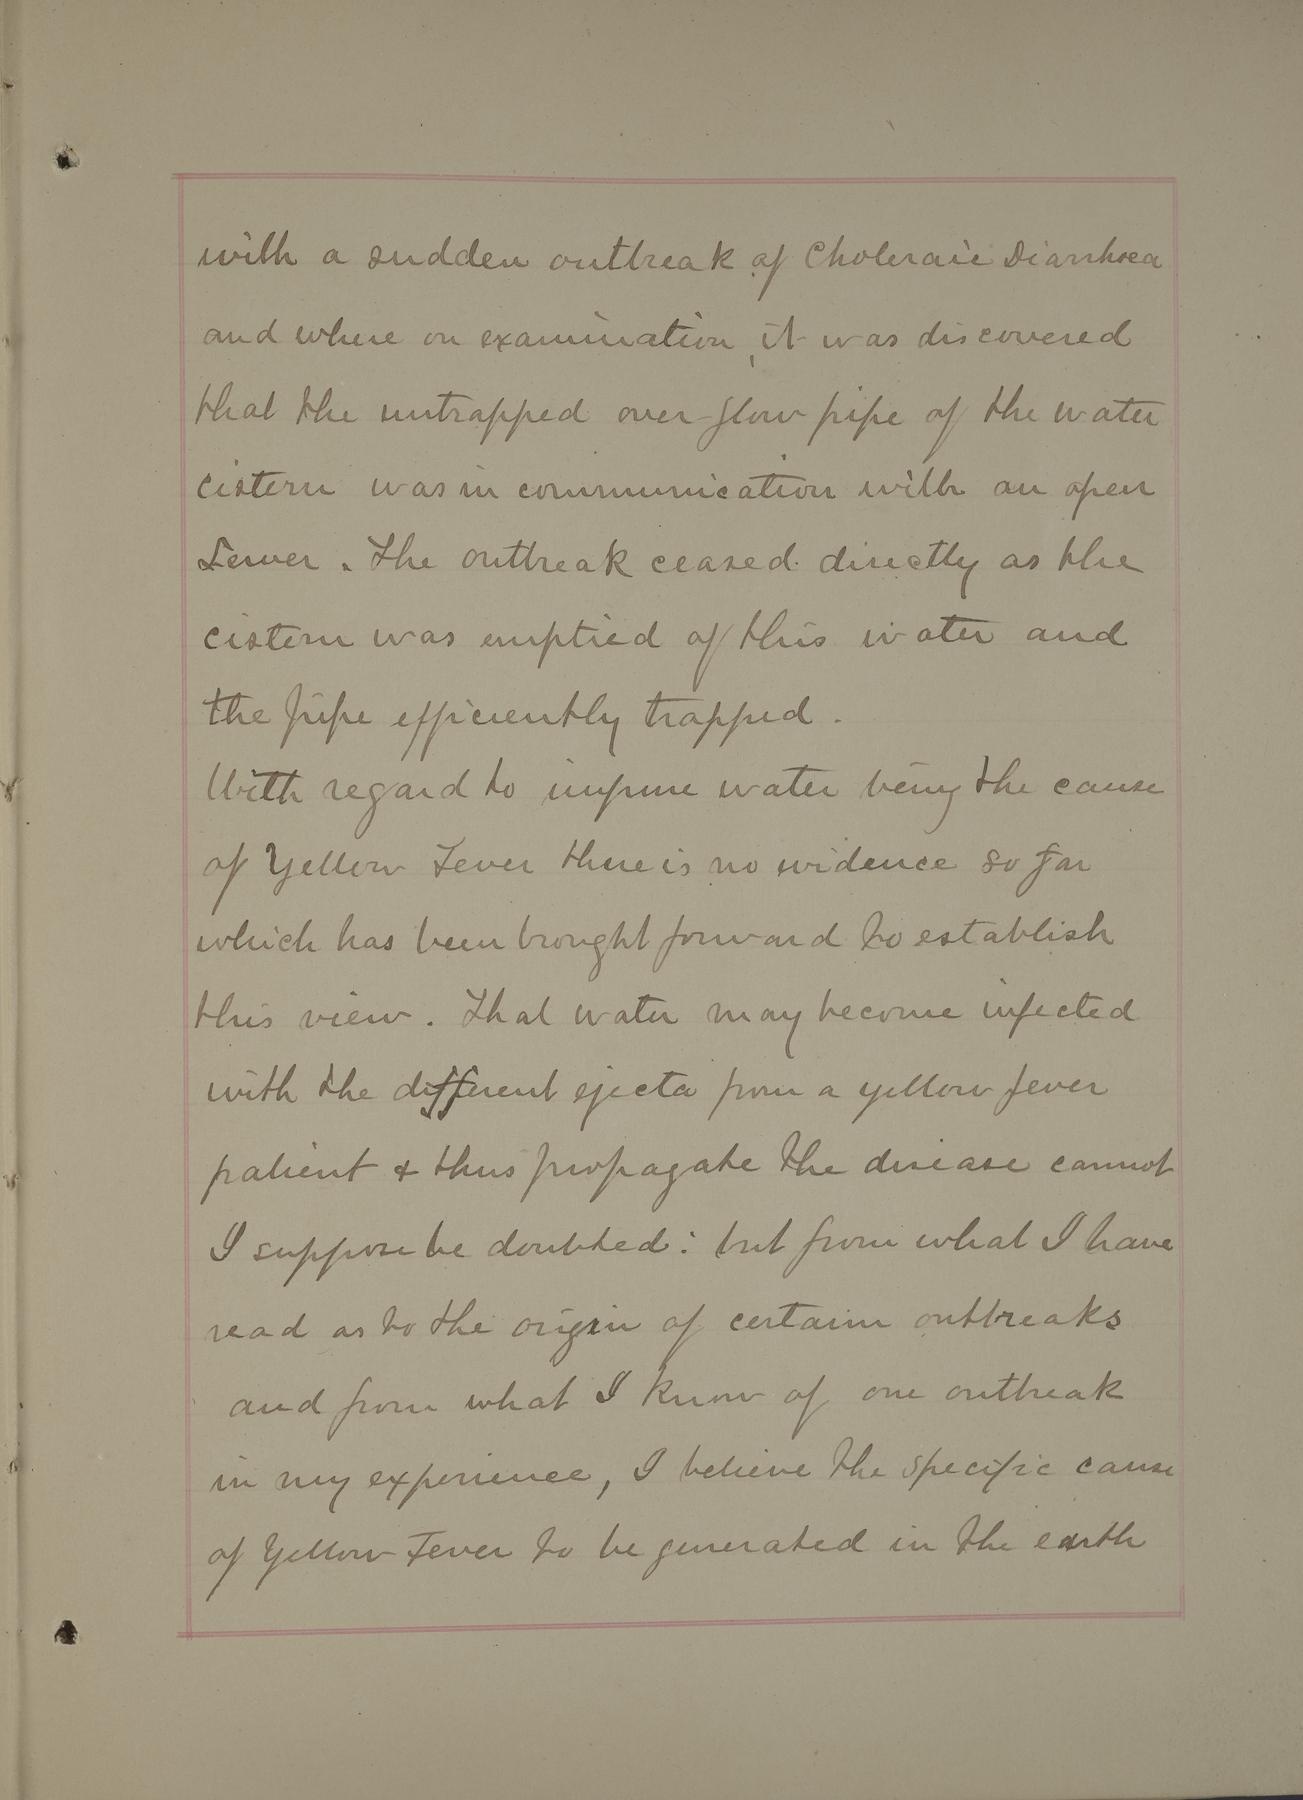 with a sudden outbreak of Choleraic Diarrhoea
and where on examination, it was discovered
that the untrapped over-flow pipe of the water
cistern was in communication with an open
Sewer. The outbreak ceased directly as the
cistern was emptied of this water and
the pipe efficiently trapped.
With regard to impure water being the cause
of Yellow Fever there is no evidence so far
which has been brought forward to establish
this view. That water may become infected
with the different ejecta from a yellow fever
patient & thus propagate the disease cannot
I suppose be doubted: but from what I have
read as to the origin of certain outbreaks
and from what I know of one outbreak
in my experience, I believe the specific cause
of Yellow Fever to be generated in the earth